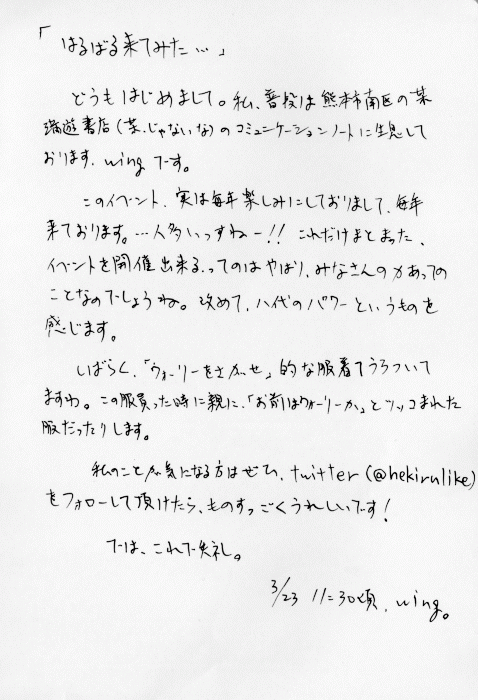 「はるばる来てみた…」
どうもはじめまして。私、普段は熊本市南区の某
端遊書店(某、じゃないな)のコミュニケーションノートに生息して
おります、wingです。
このイベント、実は毎年楽しみにしておりまして、毎年
来ております。…人多いっすねー!! これだけまとまった、
イベントを開催出来るってのはやはり、みなさんの力あっての
ことなのでしょうね。改めて、八代のパワーというものを
感じます。
しばらく、「ウォーリーをさがせ」的な服着てうろついて
ますわ。この服買った時に親に、「お前はウォーリーか」とツッコまれた
服だったりします。
私のことが気になる方はぜひ、twitter(@hekirulike)
をフォローして頂けたら、ものすっごくうれしいです!
では、これで失礼。
3/23 11:30頃、wing。